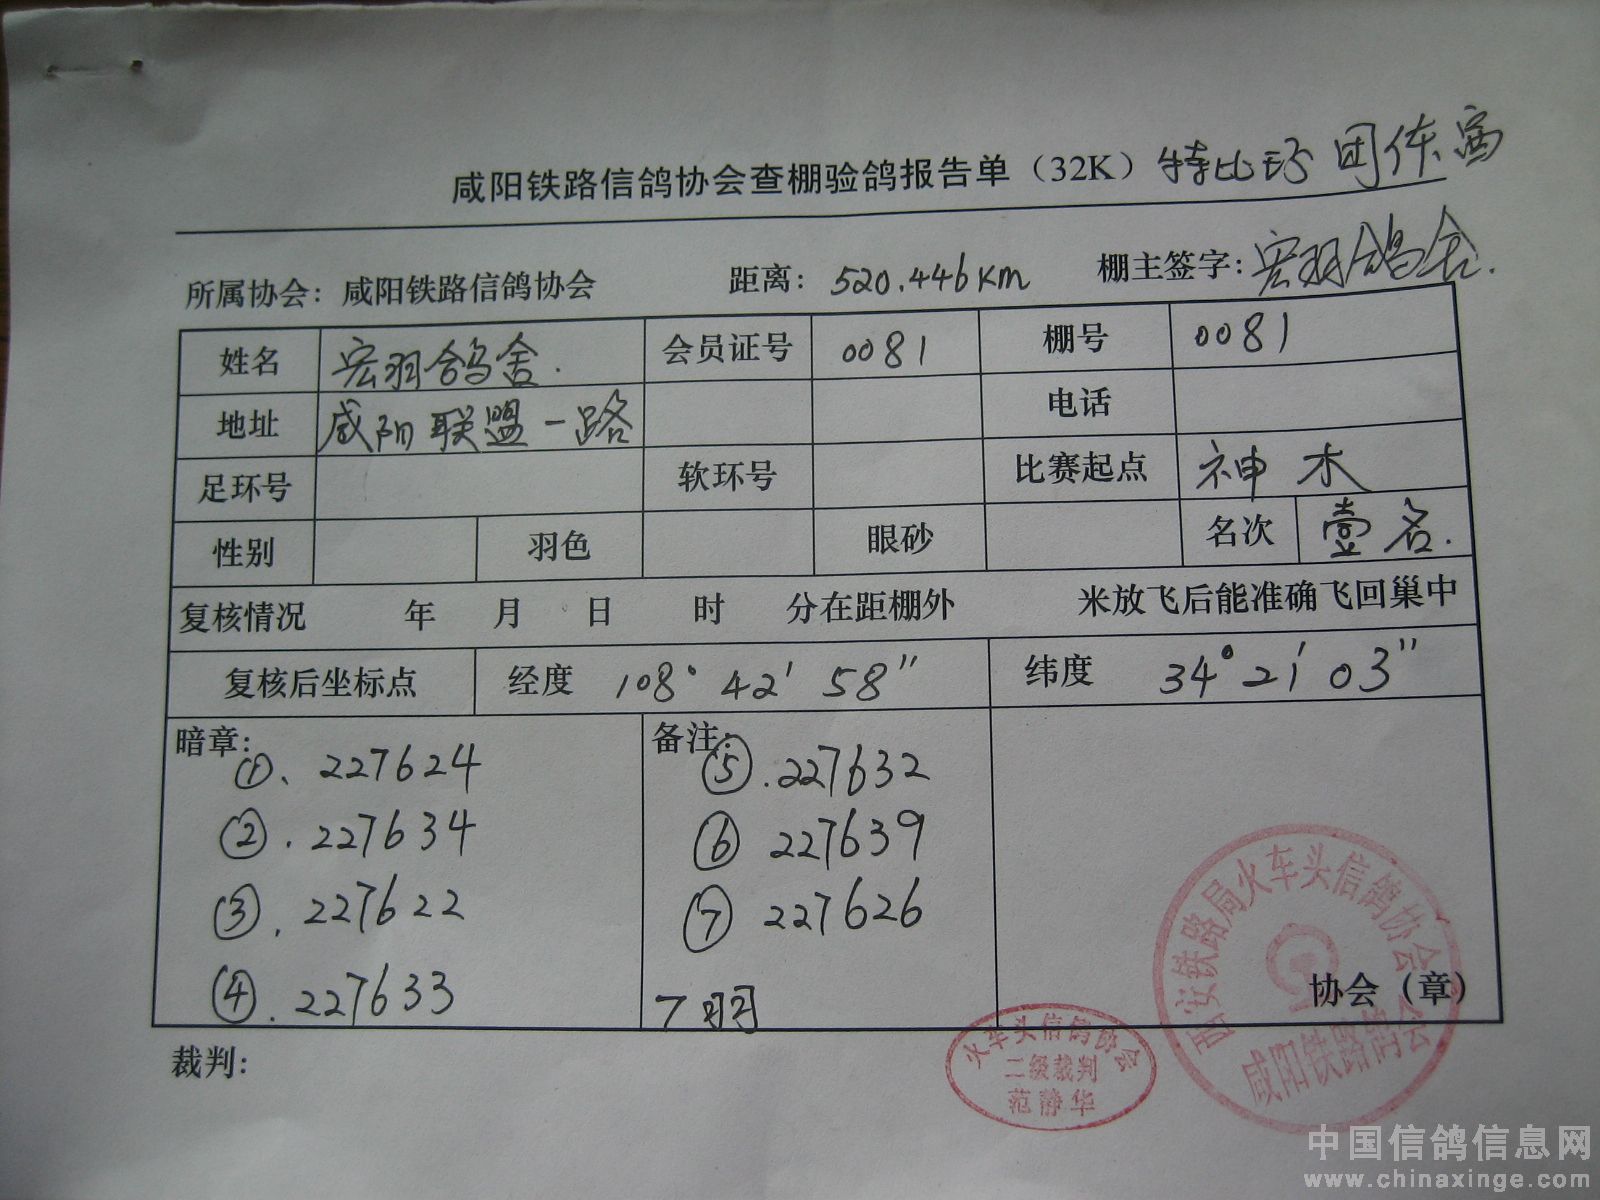 咸阳铁路信鸽协会查棚验鸽报告单（32K）特比环 团体
所属协会：咸阳铁路信鸽协会 距离：520.446km 棚主签字：宏羽鸽舍.
姓名 宏羽鸽舍. 会员证号 0081 棚号 0081
地址 咸阳联盟一路 电话
足环号 软环号 比赛起点 神木
性别 羽色 眼砂 名次 壹名.
复核情况 年 月 日 时 分在距棚外 米放飞后能准确飞回巢中
复核后坐标点 经度 108° 42′ 58″ 纬度 34° 21′ 03″
暗章： 备注：
①、227624 ⑤.227632
②.227634 ⑥ 227639
③.227622 ⑦ 227626
④.227633 7羽
协会（章）
裁判：
火车头信鸽协会
二级裁判
范静华
西安铁路局火车头信鸽协会
咸阳铁路鸽会
中国信鸽信息网
www.chinaxinge.com